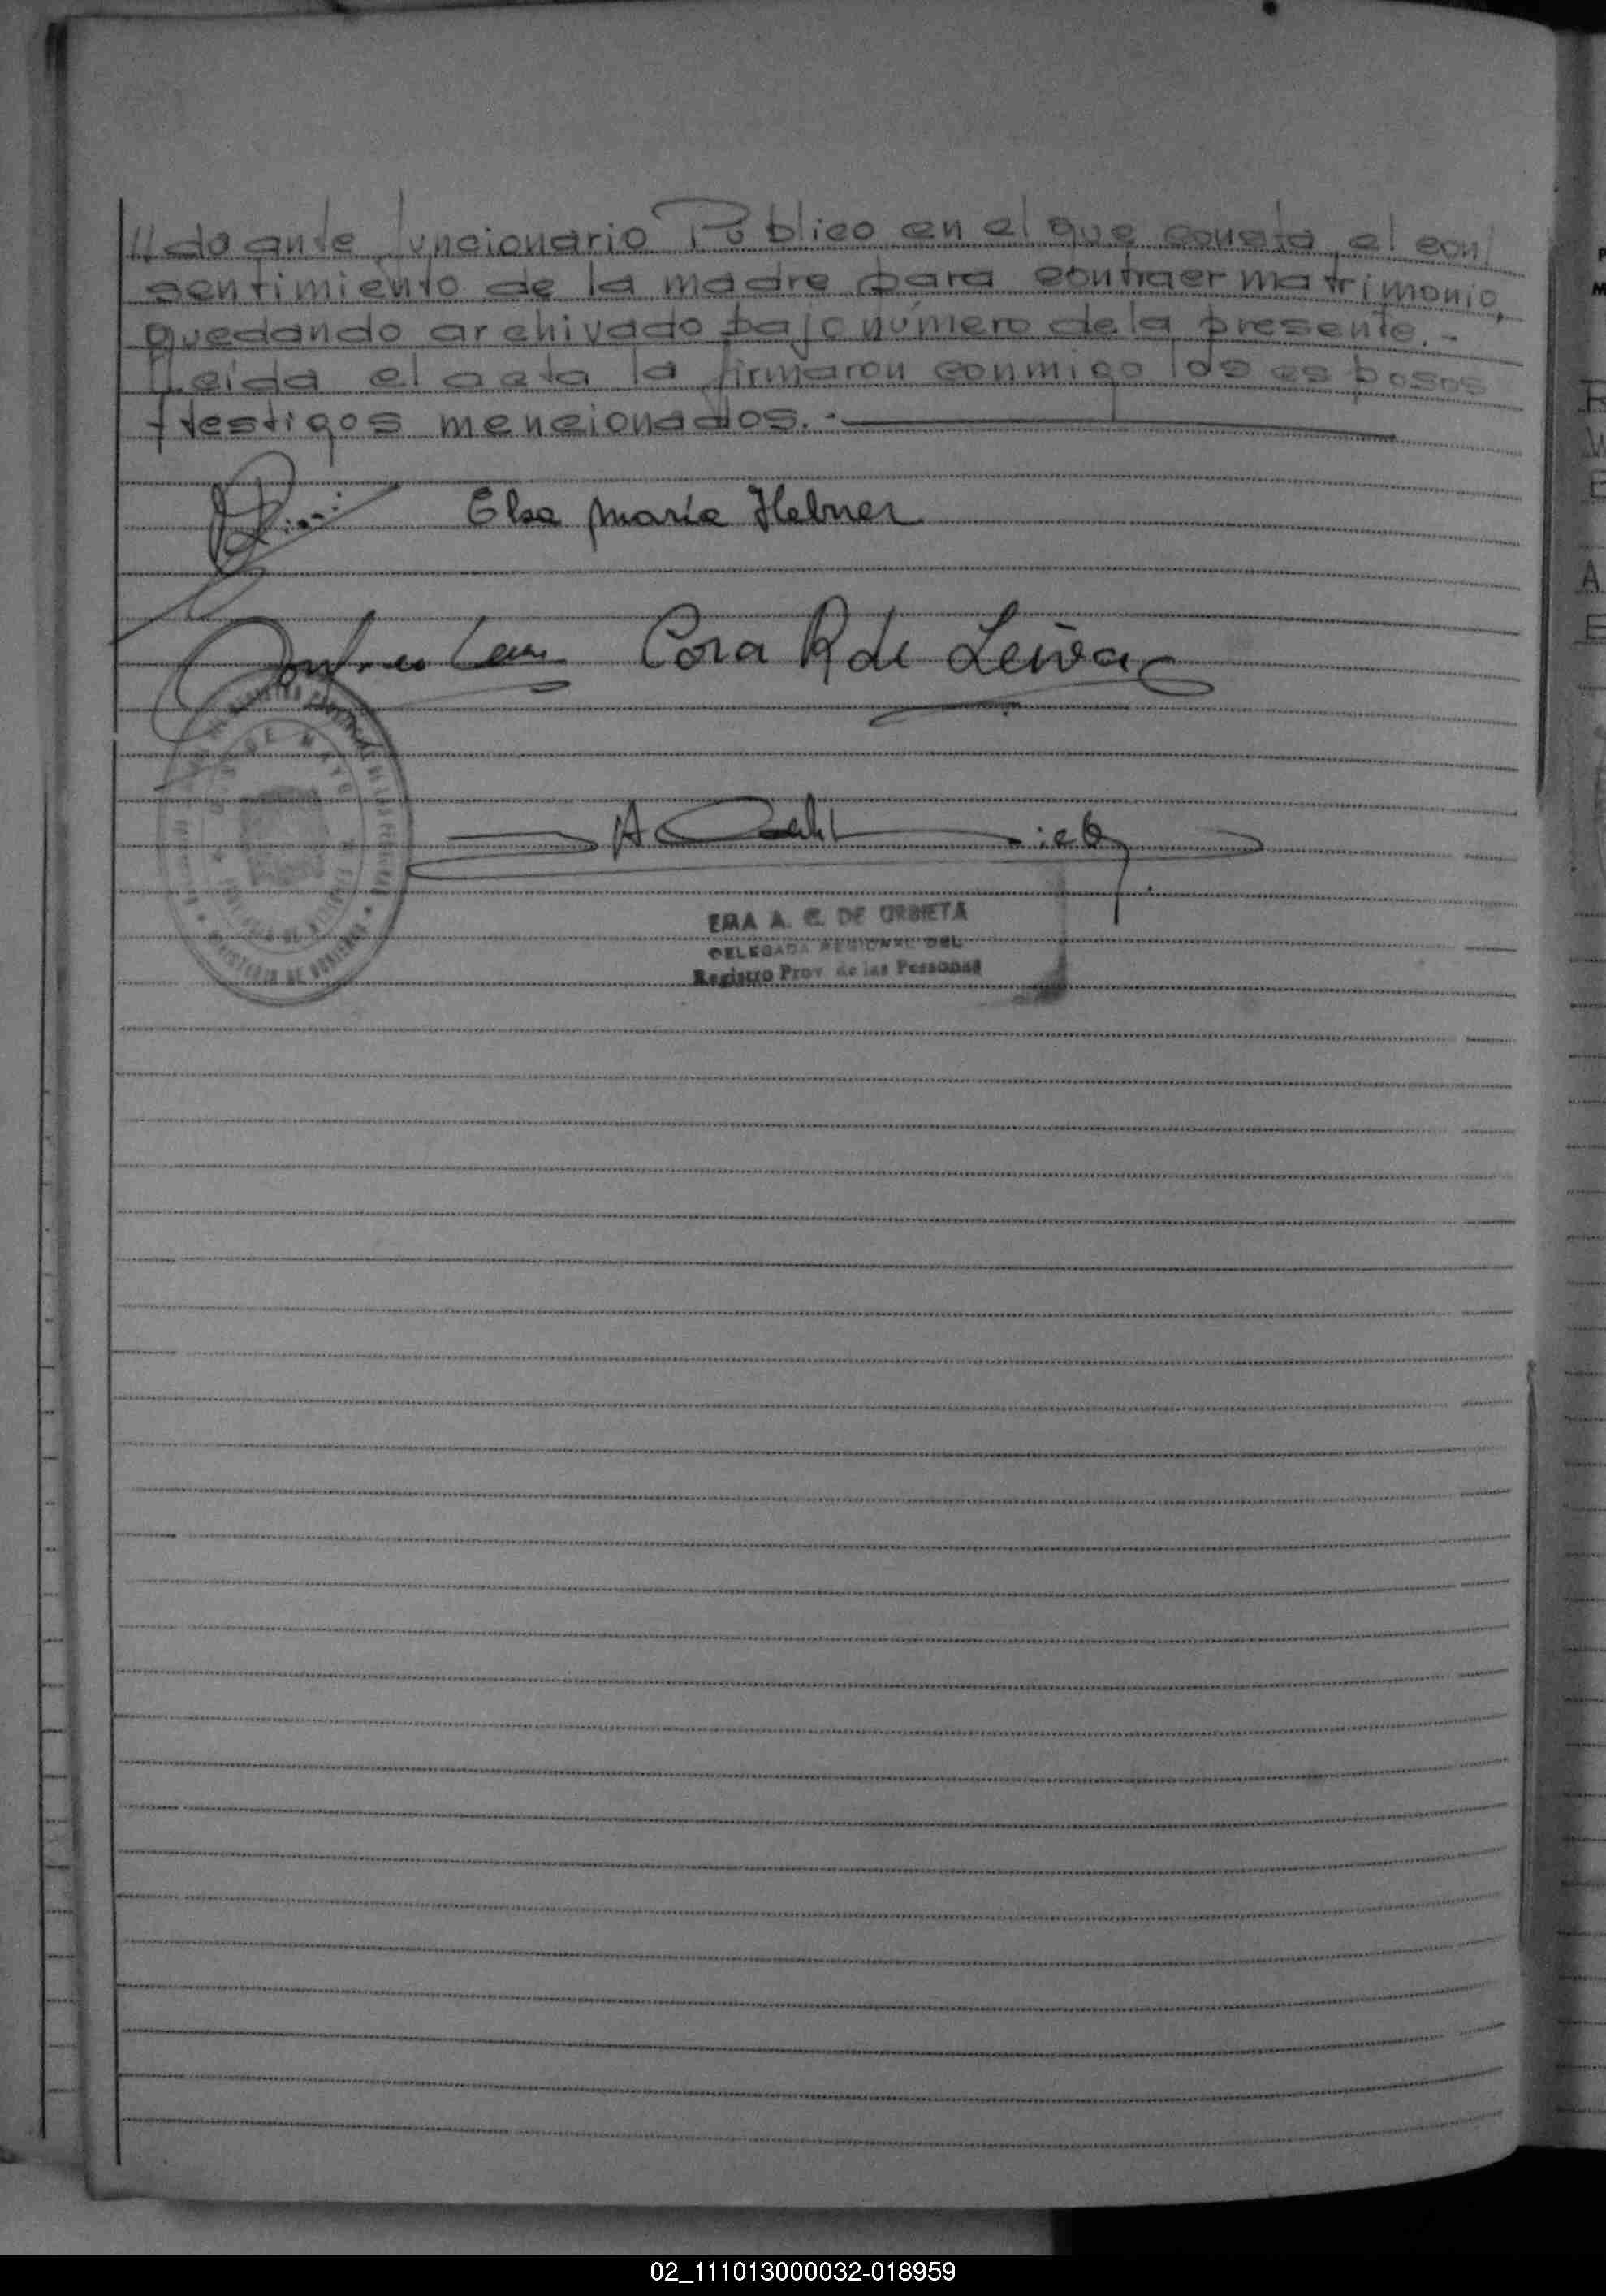 //do ante funcionario Público en el que consta el con/
sentimiento de la madre para contraer matrimonio,
quedando archivado bajo número de la presente.-
Leida el acta la firmaron conmigo los esposos
y testigos mencionados.-
Elsa María Hebner
Cora R de Leiva
DE MAYO
MINISTERIO DE GOBIERNO
EMA A. C. DE URBIETA
DELEGADA REGIONAL DEL
Registro Prov. de las Personas
02_111013000032-018959